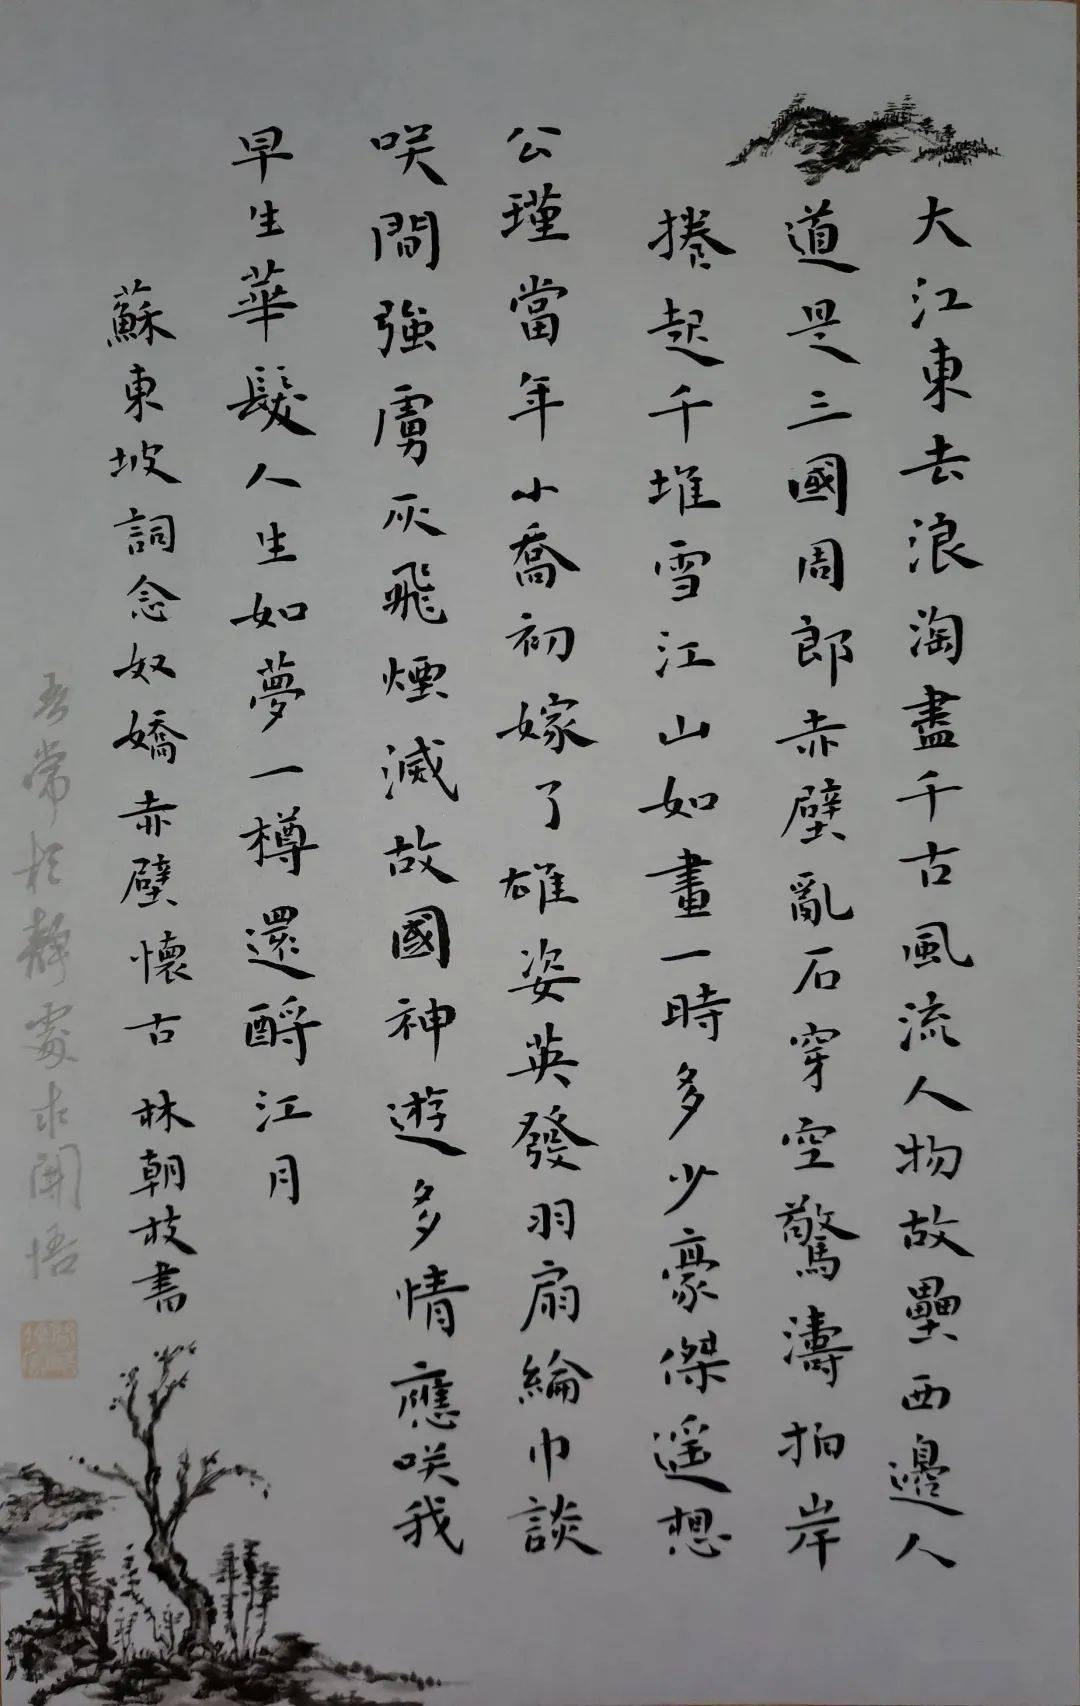 大江東去浪淘盡千古風流人物故壘西邊人
道是三國周郎赤壁亂石穿空驚濤拍岸
捲起千堆雪江山如畫一時多少豪傑遥想
公瑾當年小喬初嫁了雄姿英發羽扇綸巾談
咲間強虜灰飛煙滅故國神遊多情應咲我
早生華髮人生如夢一樽還酹江月
蘇東坡詞念奴嬌赤壁懷古 林朝枝書
吾常於靜處求開悟